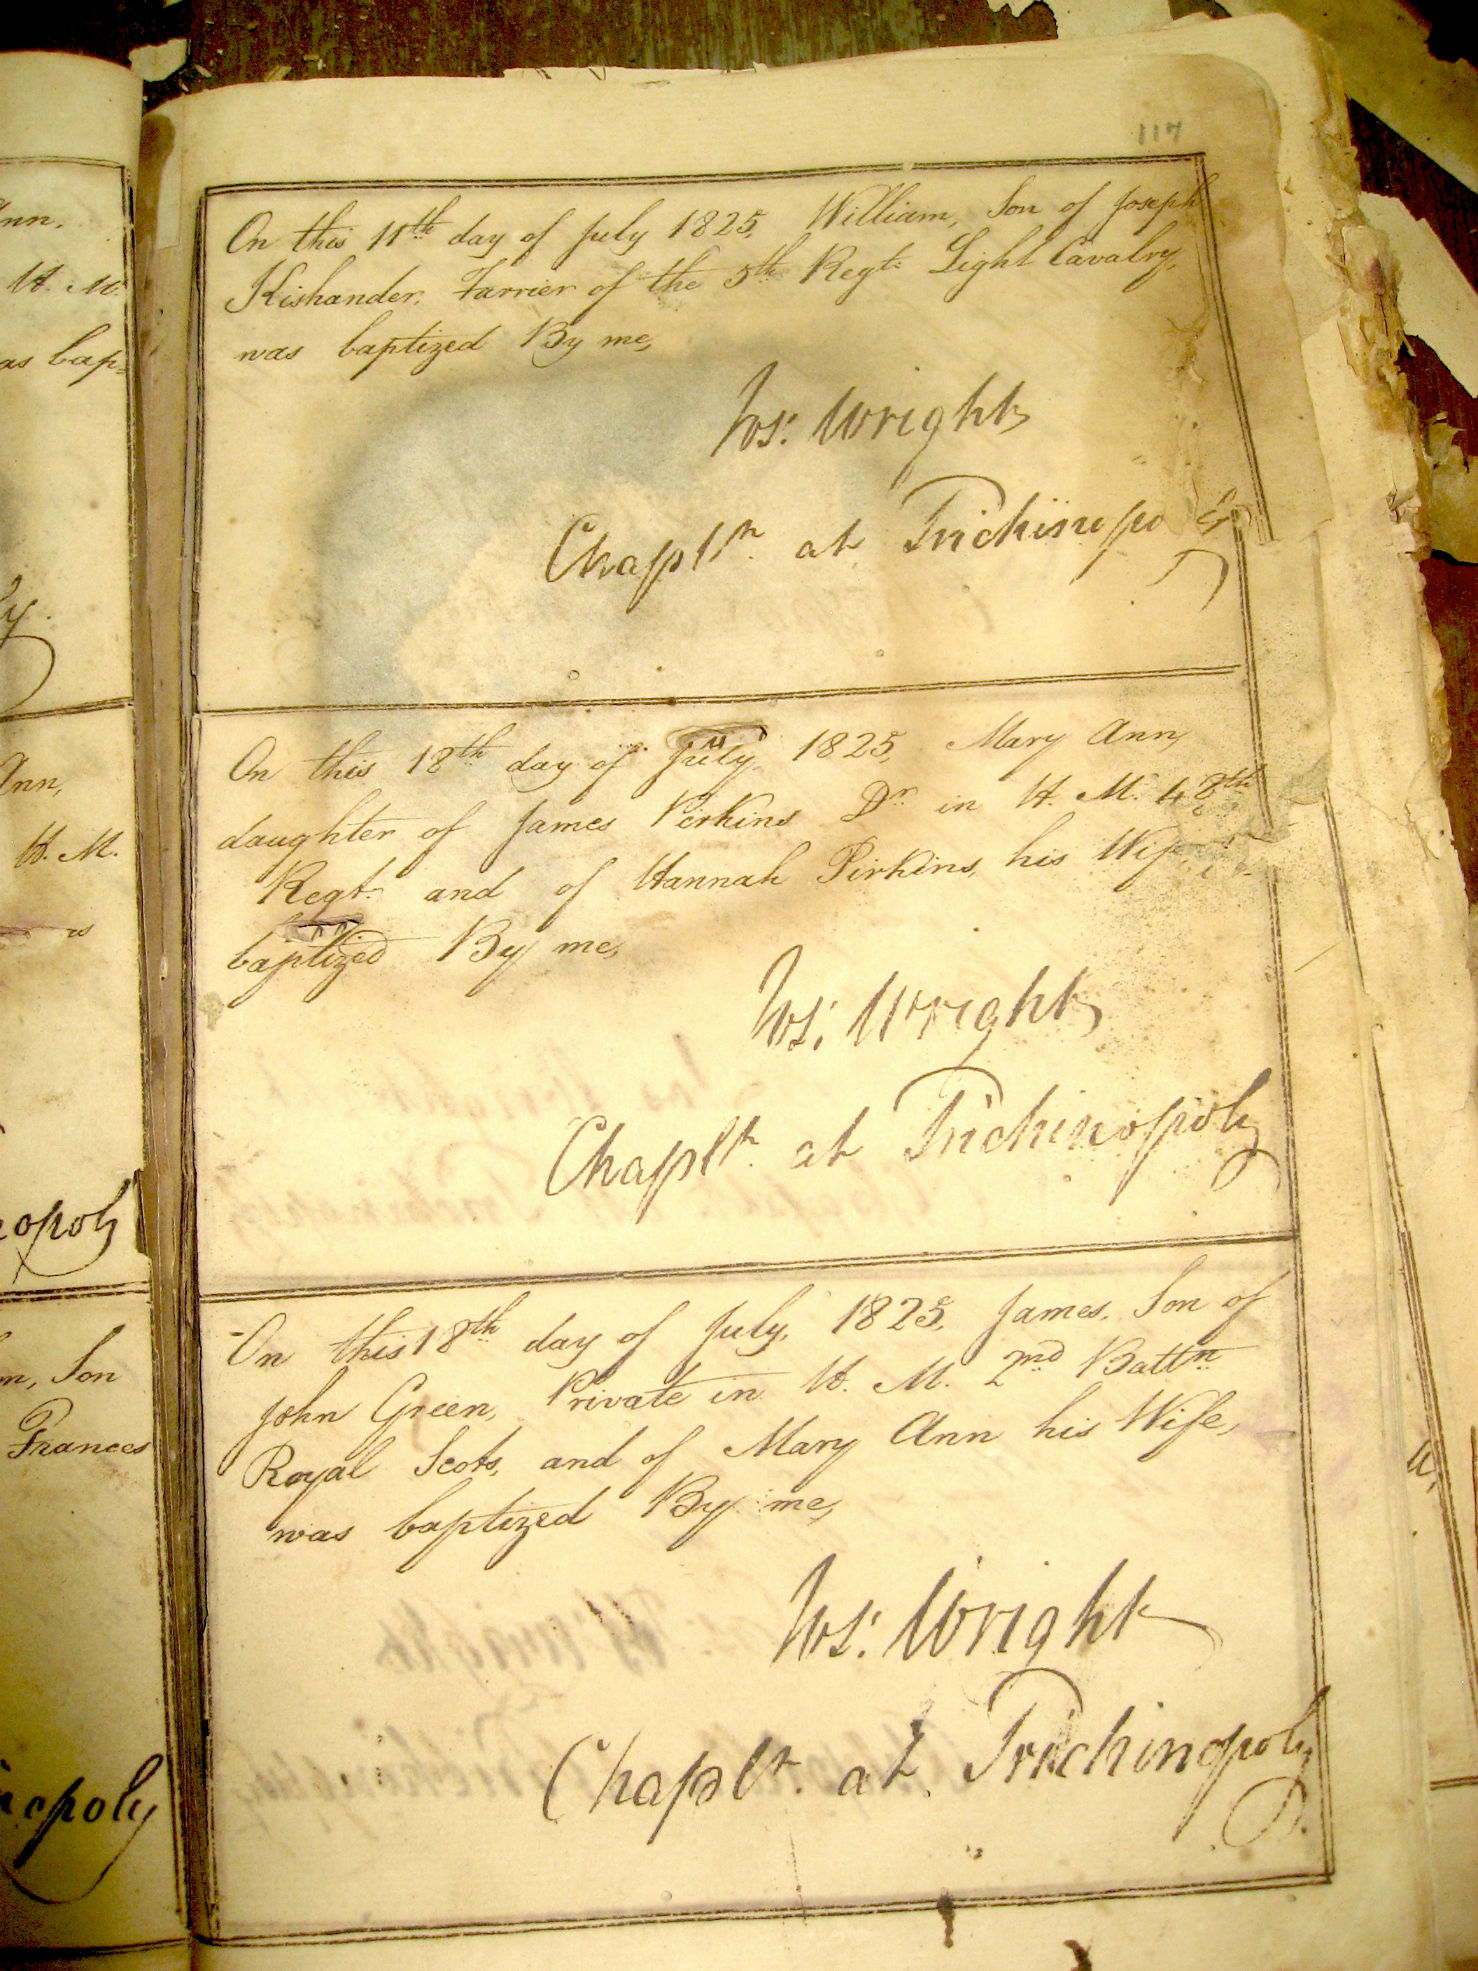 117
On this 11th day of July 1825, William, Son of Joseph
Kishander, Farrier of the 5th Regt. Light Cavalry,
was baptized By me,
Jos: Wright,
Chapln. at Trichinopoly
On this 18th day of July 1825, Mary Ann,
daughter of James Perkins Dr. in H. M. 48th
Regt. and of Hannah Pirkins, his Wife
baptized By me,
Jos: Wright,
Chapln. at Trichinopoly
On this 18th day of July, 1825, James, Son of
John Green, Private in H. M. 2nd Battn.
Royal Scots, and of Mary Ann his Wife,
was baptized By me,
Jos: Wright
Chapln. at Trichinopoly
nn,
H. M.
as bap=
y.
Ann,
H. M.
opoly
m, Son
Frances
opoly